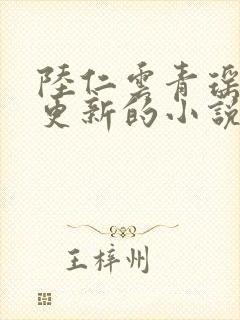 陸仁雲青瑶
更新的小說
王梓州